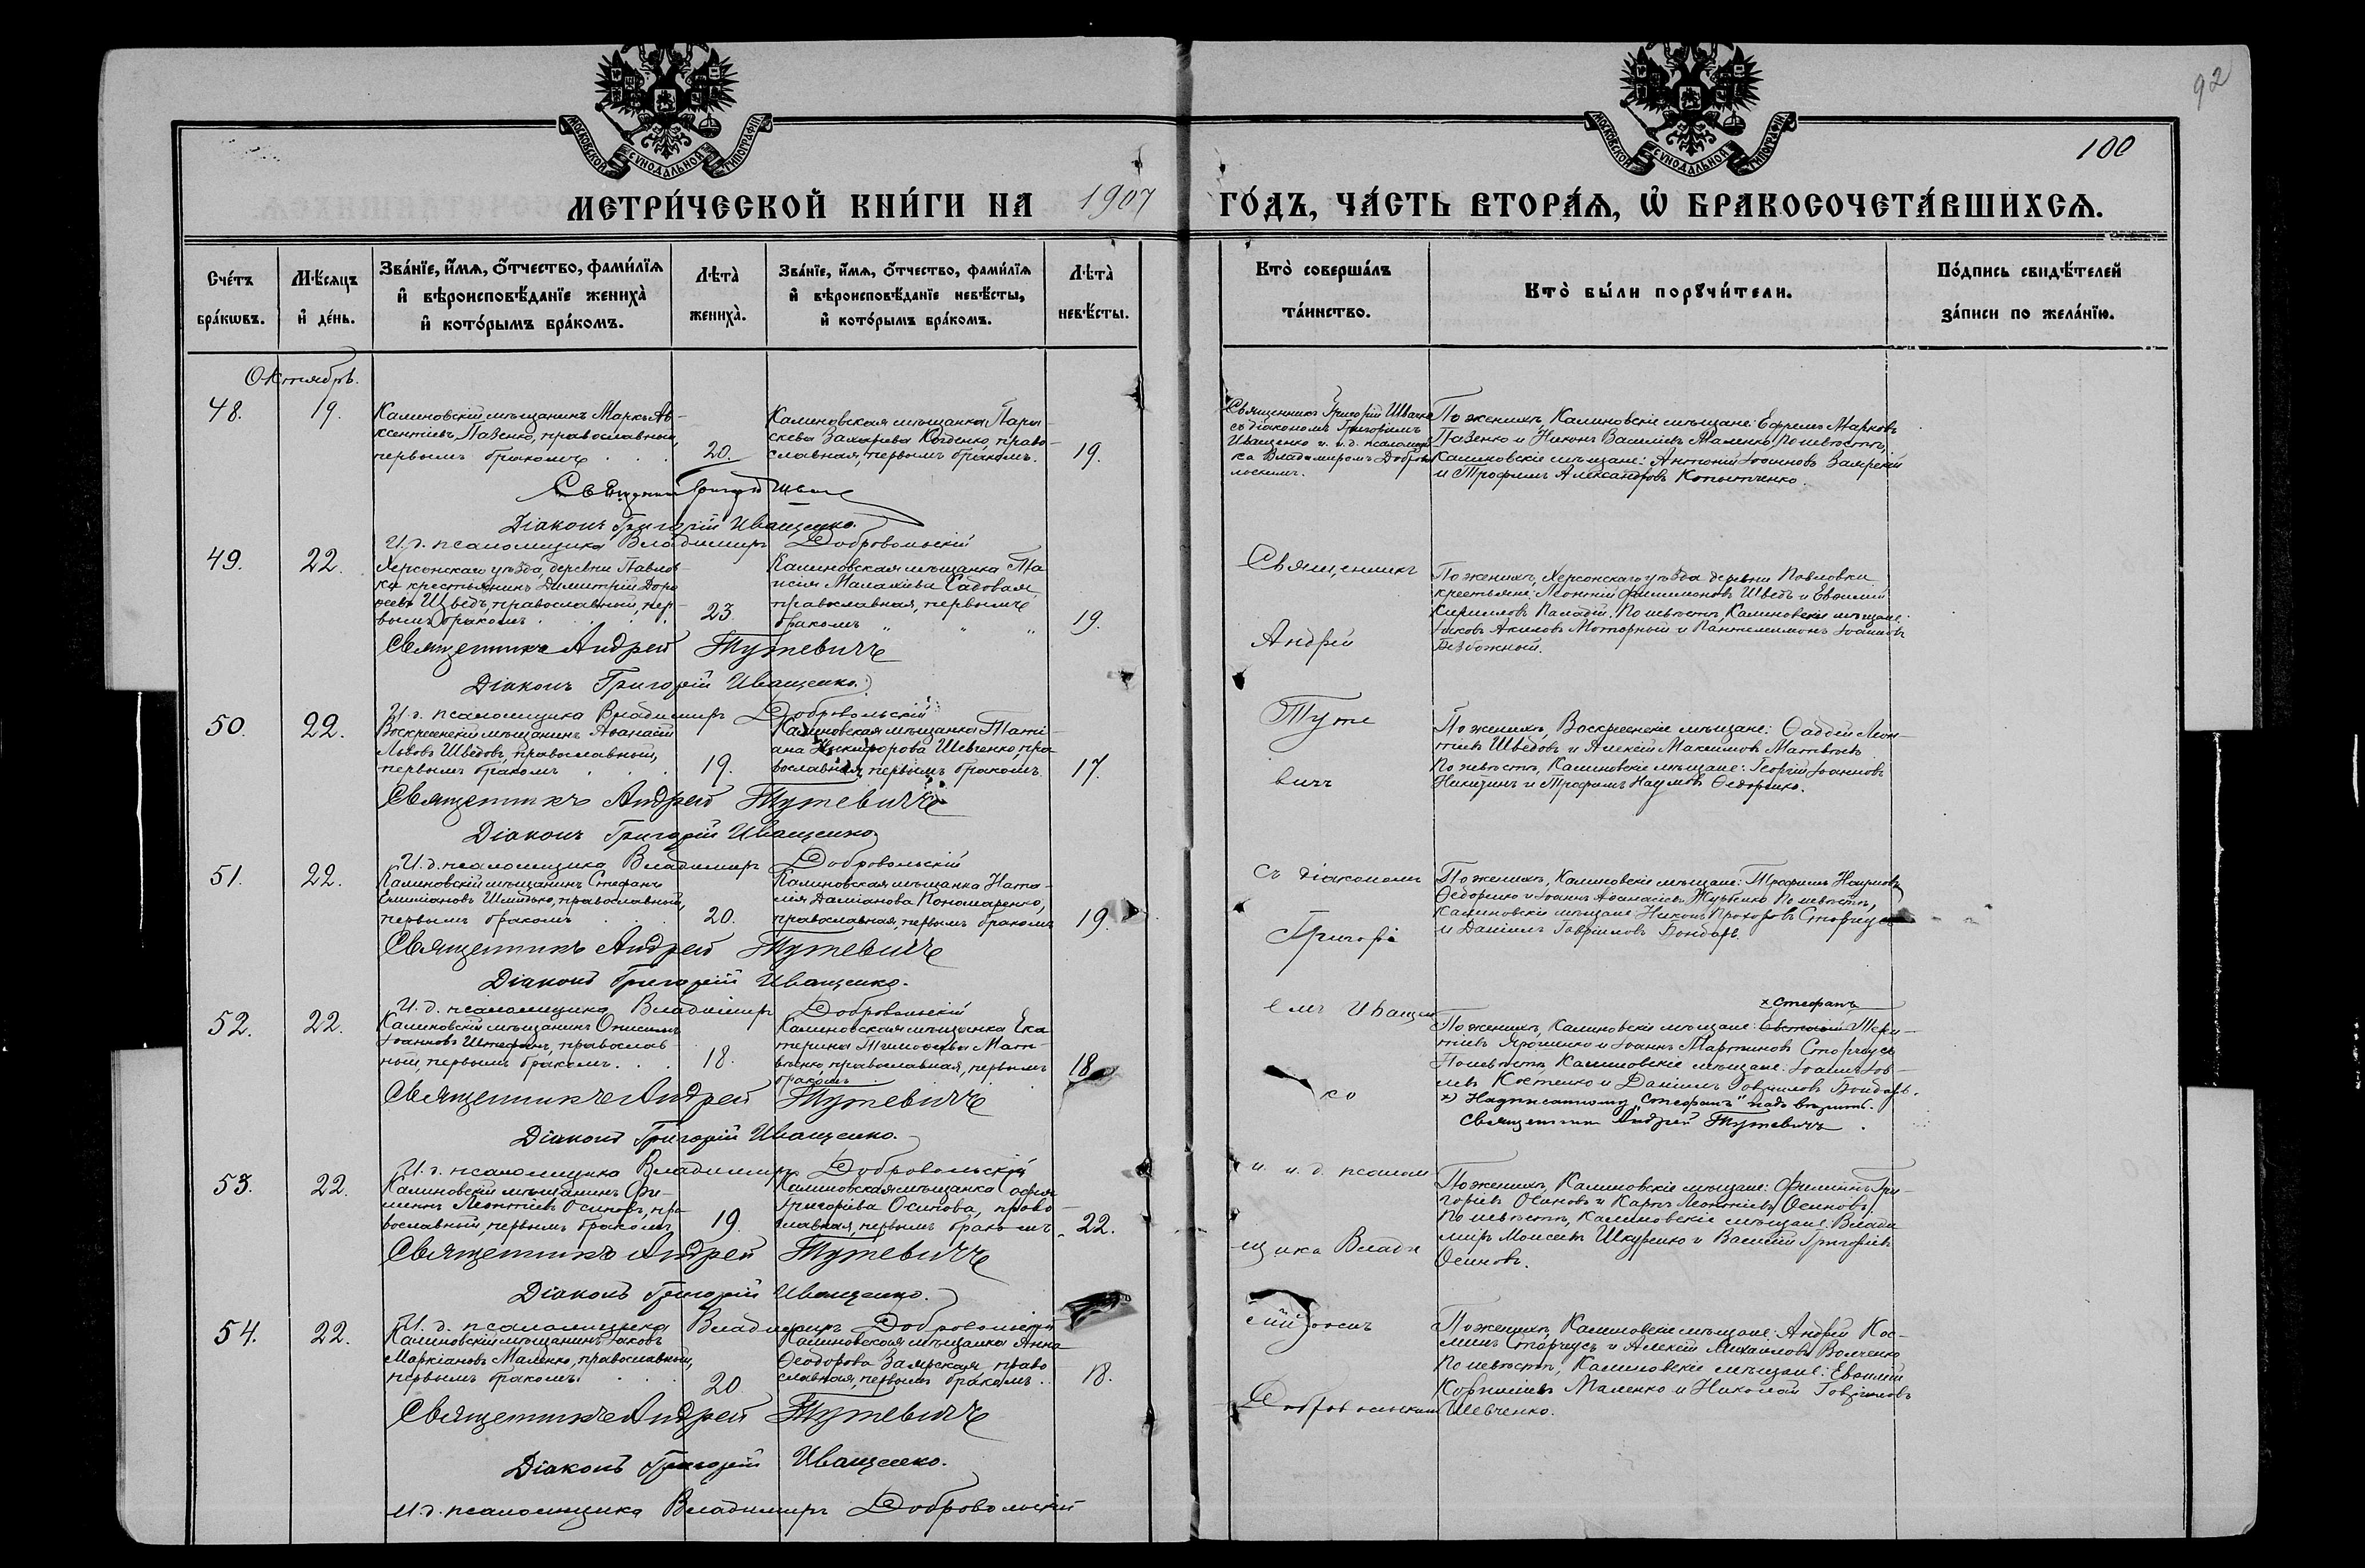 92
100
МОСКОВСКОЙ СѴНОДАЛЬНОЙ ТИПОГРАФІИ
МОСКОВСКОЙ СѴНОДАЛЬНОЙ ТИПОГРАФІИ
МЕТРИ́ЧЕСКОЙ КНИ́ГИ НА 1907 ГО́ДЪ, ЧА́СТЬ ВТОРА́Я, Ѡ БРАКОСОЧЕТА́ВШИХСЯ.
Сче́тъ бра́кѡвъ.
Мѣ́сяцъ и҆ де́нь.
Зва́нїе, и҆́мя, ѻ҆́тчество, фами́лїя и҆ вѣроисповѣ́данїе жениха̀ и҆ кото́рымъ бра́комъ.
Лѣта̀ жениха̀.
Зва́нїе, и҆́мя, ѻ҆́тчество, фами́лїя и҆ вѣроисповѣ́данїе невѣ́сты, и҆ кото́рымъ бра́комъ.
Лѣта̀ невѣ́сты.
Кто̀ соверша́лъ та́инство.
Кто̀ бы́ли порꙋчи́тели.
По́дпись свидѣ́телей за́писи по жела́нїю.
Октябрь.
48.
19.
Калиновскій мѣщанинъ Маркъ Ав-
ксентіевъ Пазенко, православный,
первымъ бракомъ
20.
Калиновская мѣщанка Пара-
скева Захаріева Коденко, право-
славная, первымъ бракомъ.
19.
Священникъ Григорій Швачко
съ діакономъ Григоріемъ
Иващенко и и. д. псаломщи
ка Владиміромъ Доброво
льскимъ.
По женихѣ, Калиновскіе мѣщане: Ефремъ Марковъ
Пазенко и Никонъ Василіевъ Маленко, По невѣстѣ,
Калиновскіе мѣщане: Антоній Іоанновъ Заярскій
и Трофимъ Александровъ Копытченко.
Священникъ Григорій Шва
Діаконъ Григорій Иващенко.
И. д. псаломщика Владимиръ Добровольскій
49.
22.
Херсонскаго уѣзда, деревни Павлов-
ки крестьянинъ Димитрій Доро
ѳеевъ Шведъ, православный, пер-
вымъ бракомъ
23.
Калиновская мѣщанка Та
исія Малахіева Садовая,
православная, первымъ
бракомъ
19.
Священникъ
Андрей
Туте
вичъ
съ діакономъ
Григорі
емъ Иващен
ко
и и. д. псалом
щика Влади
Добровольскимъ
По женихѣ, Херсонскаго уѣзда деревни Павловки
крестьяне: Леонтій Филимоновъ Шведъ и Евѳимій
Кирилловъ Паладій. По невѣстѣ, Калиновскіе мѣщане:
Іаковъ Акиловъ Моторный и Пантелимонъ Іоанновъ
Безбожный.
Священникъ Андрей Тутевичъ
Діаконъ Григорій Иващенко.
И. д. псаломщика Владимиръ Добровольскій
50.
22.
Воскресенскій мѣщанинъ Аѳанасій
Львовъ Шведовъ, православный,
первымъ бракомъ
19.
Калиновская мѣщанка Таті-
ана Никифорова Шевченко, пра
вославная, первымъ бракомъ
17.
По женихѣ, Воскресенскіе мѣщане: Ѳаддей Леон-
тіевъ Шведовъ и Алексій Максимовъ Матвѣевъ
По невѣстѣ, Калиновскіе мѣщане: Георгій Іоанновъ
Никитинъ и Трофимъ Наумовъ Ѳедоренко.
Священникъ Андрей Тутевичъ
Діаконъ Григорій Иващенко
И. д. псаломщика Владимиръ Добровольскій
51.
22.
Калиновскій мѣщанинъ Стефанъ
Емиліановъ Шмидько, православный,
первымъ бракомъ
20.
Калиновская мѣщанка Ната-
лія Даміанова Пономаренко,
православная, первымъ бракомъ
19.
По женихѣ, Калиновскіе мѣщане: Трофимъ Наумовъ
Ѳедоренко и Іоаннъ Аѳанасіевъ Журбенко По невѣстѣ,
Калиновскіе мѣщане Никонъ Прохоровъ Сторчеусъ
и Даніилъ Гавріиловъ Бондарь.
Священникъ Андрей Тутевичъ
Діаконъ Григорій Иващенко.
И. д. псаломщика Владимиръ Добровольскій
52.
22.
Калиновскій мѣщанинъ Онисимъ
Іоанновъ Штефанъ, православ-
ный, первымъ бракомъ
18.
Калиновская мѣщанка Ека
терина Тимоѳеева Мат-
вѣенко, православная, первымъ
бракомъ
18
х Стефанъ
По женихѣ, Калиновскіе мѣщане: Терен-
тіевъ Ярошенко и Іоаннъ Мартиновъ Сторчеусъ
По невѣстѣ Калиновскіе мѣщане: Іоаннъ Іов-
левъ Костенко и Даніилъ Гавриловъ Бондарь.
х) Надписанному „Стефанъ" надо вѣрить.
Священникъ Андрей Тутевичъ
Священникъ Андрей Тутевичъ
Діаконъ Григорій Иващенко.
И. д. псаломщика Владимиръ Добровольскій
53.
22.
Калиновскій мѣщанинъ Фи-
липпъ Леонтіевъ Осиповъ, пра
вославный, первымъ бракомъ
19.
Калиновская мѣщанка Софія
Григоріева Осипова, право-
славная, первымъ бракомъ
22.
По женихѣ, Калиновскіе мѣщане: Филиппъ Гри-
горіевъ Осиповъ и Карпъ Леонтіевъ Осиповъ
По невѣстѣ, Калиновскіе мѣщане: Влади
міръ Моисеевъ Шкуренко и Василій Григоріевъ
Осиповъ.
Священникъ Андрей Тутевичъ
Діаконъ Григорій Иващенко.
И. д. псаломщика Владимиръ Добровольскій
54.
22.
Калиновскій мѣщанинъ Іаковъ
Маркіановъ Маленко, православный,
первымъ бракомъ
20
Калиновская мѣщанка Анна
Ѳеодорова Заярская, право
славная, первымъ бракомъ
18.
По женихѣ, Калиновскіе мѣщане: Андрей Кос-
минъ Сторчеусъ и Алексій Михаиловъ Волченко
По невѣстѣ, Калиновскіе мѣщане: Евѳимій
Корниліевъ Маленко и Николай Гавриловъ
Шевченко.
Священникъ Андрей Тутевичъ
Діаконъ Григорій Иващенко.
И. д. псаломщика Владимиръ Добровольскій